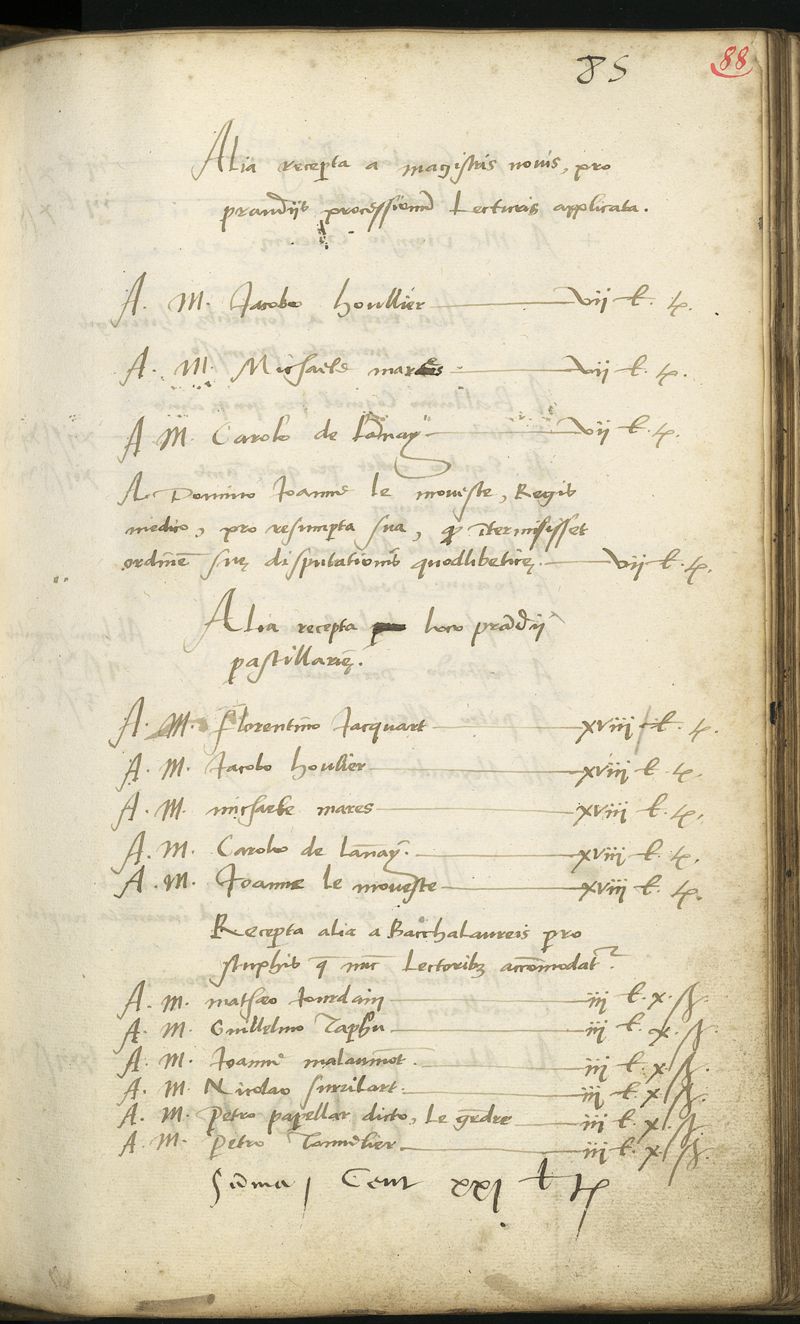 85
88
Alia recepta a magistris novis, pro
prandiis processionũ Lecturis applicata.
A. M. Jacobo houllier vii l. t.
A. M. Michaele mares vii l. t.
A M. Carolo de Lãnay vii l. t.
A Domino Joanne le moveste, Regis
medico, pro resumpta sua, ꝙ ĩtermisisset
ordinẽ suę disputationis quodlibeticę. vii l. t.
Alia recepta loco prãdii
pastillarię.
A. M. Florentino Jacquart xviii l. t.
A. M. Jacobo houllier xviii l. t.
A. M. michaele mares xviii l. t.
A. M. Carolo de Lãnay. xviii l. t.
A. M. Joanne le moveste xviii l. t.
Recepta alia a Bacchalaureis pro
stuphis q̃ nũc Lectoribꝫ accõmodat.
A. M. mathæo Jourdain iii l. x. ß.
A. M. Guillelmo iii l. x. ß.
A. M. Joanne malaumõt. iii l. x ß.
A. M. Nicolao iii l. x ß.
A. M. Petro papellar dicto, Le gẽdre iii l. x. ß.
A. M. Petro Tõnelier iii l. x ß.
Sũma Cent xxi l t